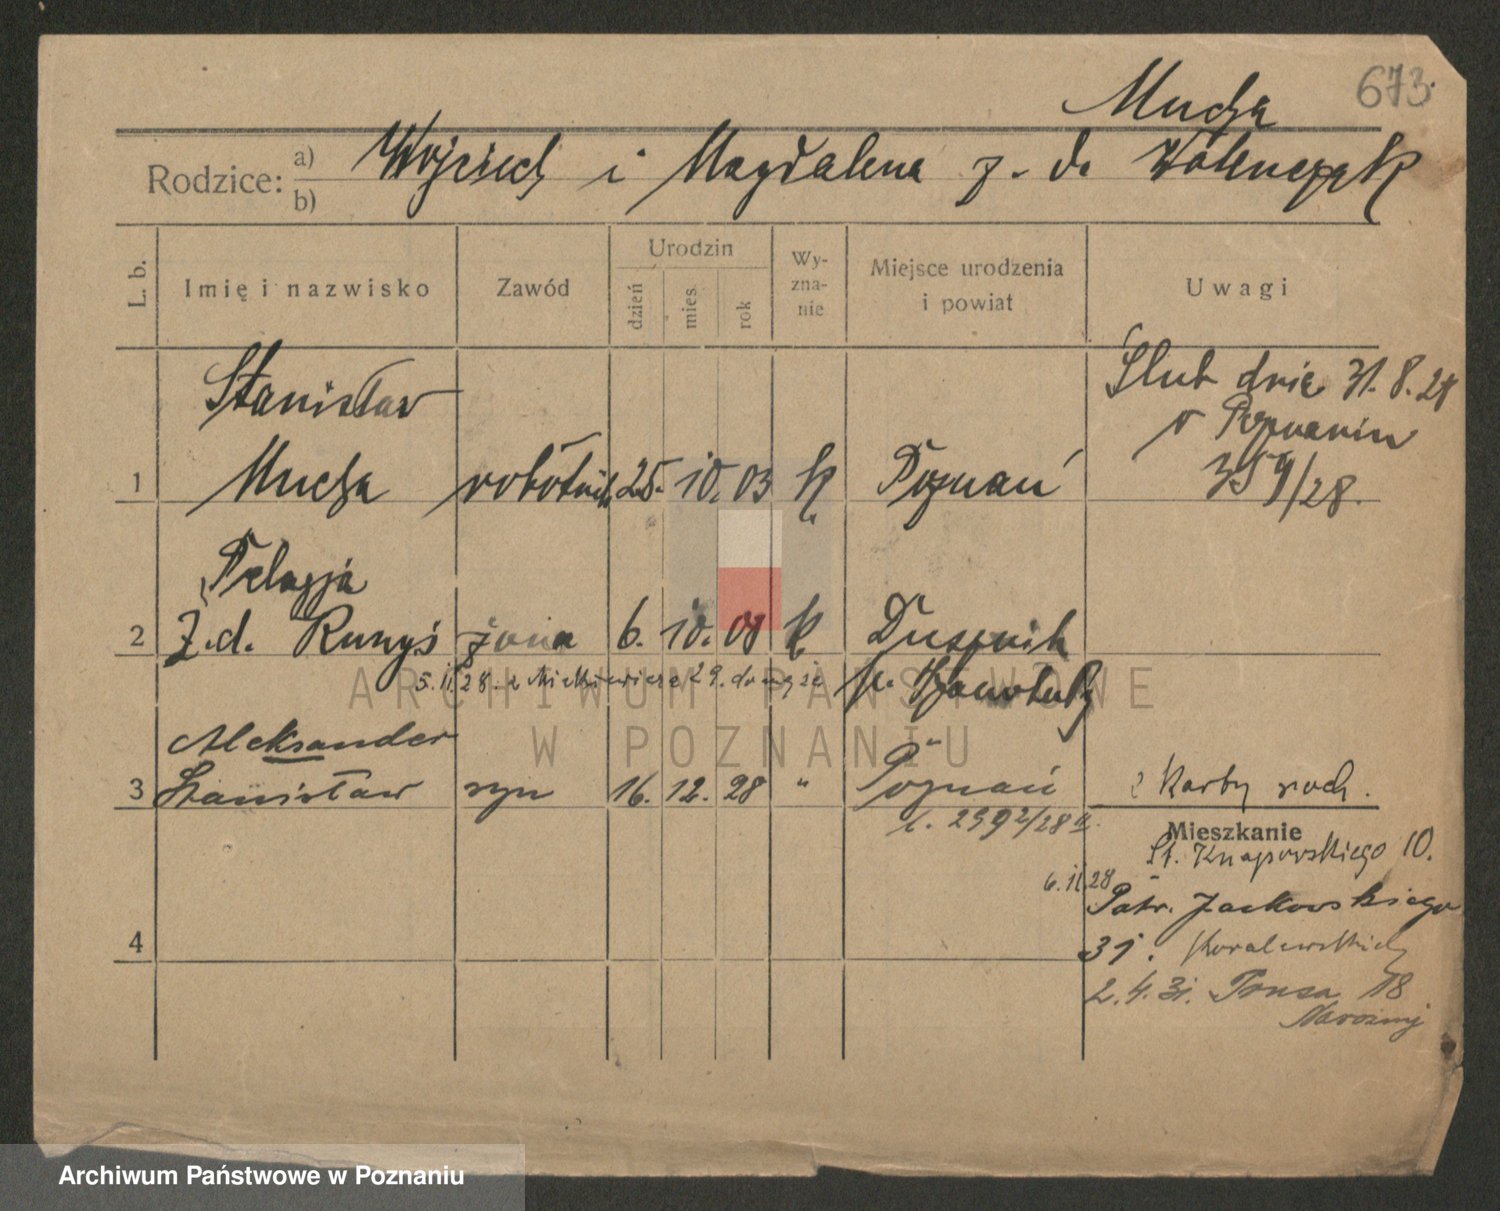 Mucha
673.
Rodzice:
a) Wojciech i Magdalena z. d.
b)
L. b.
Imię i nazwisko
Zawód
Urodzin
dzień
mies.
rok
Wy-
zna-
nie
Miejsce urodzenia
i powiat
Uwagi
Stanisław
Ślub dnia 31.8.28
w Poznaniu
1 Mucha robotnik 25. 10. 03 k. Poznań
359/28.
Pelagja
2 z. d. Runyś żona 6. 10. 08 k Dusznik
5.11.28. z Mickiewicza 29.
p. Szamotuły
Aleksander
3 Stanisław syn 16. 12. 28 " Poznań
z Karty rodz.
Mieszkanie
St. Knapowskiego 10.
6.11.28
Patr. Jackowskiego
4
31.
2.4.31. 18
ARCHIWUM PAŃSTWOWE
W POZNANIU
Archiwum Państwowe w Poznaniu